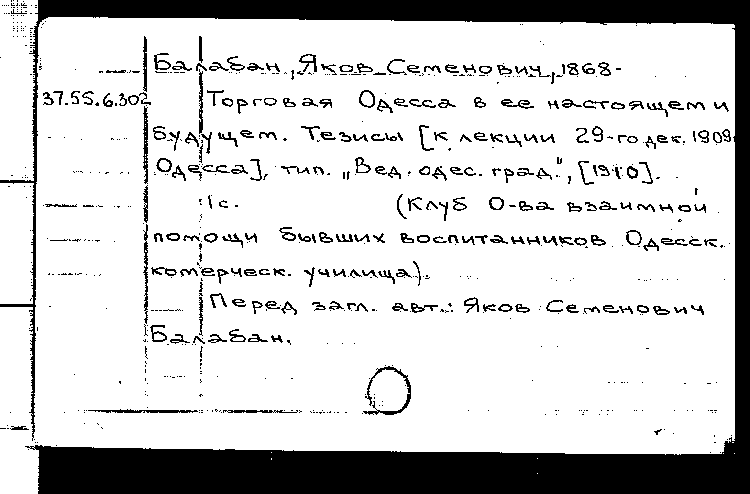 Балабан, Яков Семенович, 1868-
37.55.6.302 Торговая Одесса в ее настоящем и
будущем. Тезисы [к лекции 29-го дек. 1909.
Одесса], тип. „Вед. одес. град.", [1910].
1с. (Клуб О-ва взаимной
помощи бывших воспитанников Одесск.
комерческ. училища).
Перед загл. авт.: Яков Семенович
Балабан.